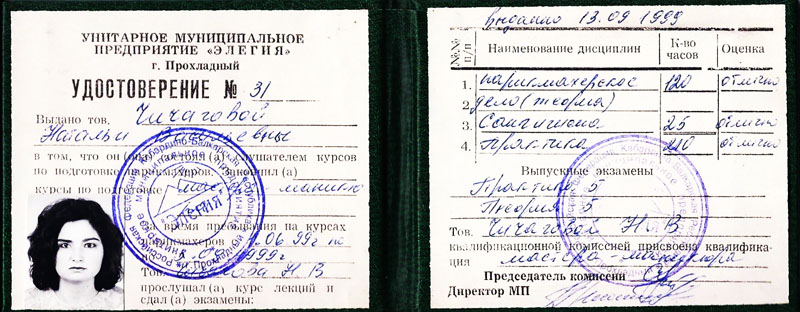 УНИТАРНОЕ МУНИЦИПАЛЬНОЕ
ПРЕДПРИЯТИЕ «ЭЛЕГИЯ»
г. Прохладный
УДОСТОВЕРЕНИЕ № 31
Выдано тов. Чичаговой
Натальи
в том, что он слушателем курсов
по подготовке
курсы по подготовке
За время пребывания на курсах
06 99г по
1999г
Тов. Н.В
прослушал (а) курс лекций и
сдал (а) экзамены:
"ЭЛЕГИЯ"
Выдано 13.09 1999
№.№ п/п Наименование дисциплин К-во часов Оценка
1. парикмахерское 120 отлично
2. дело (теория)
3. Сангигиена 25 отлично
4. Практика 210 отлично
Выпускные экзамены
Практика 5
Теория 5
Тов. Чичаговой Н.В
квалификационной комиссией присвоена квалифика-
ция мастера-маникюра
Председатель комиссии
Директор МП